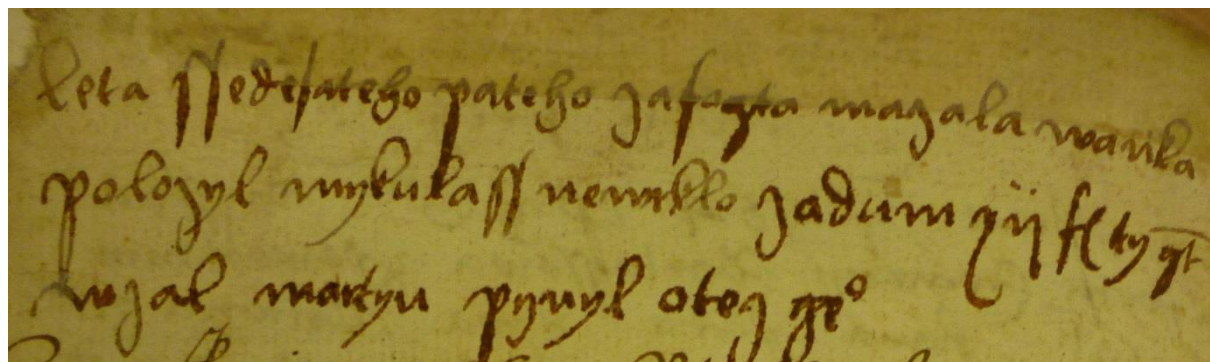 leta ssedesateho pateho za fogta mazala wanka
polozyl mykulass newrklo za dum xii fl ty gt
wzal martyn pynyl otecz geo